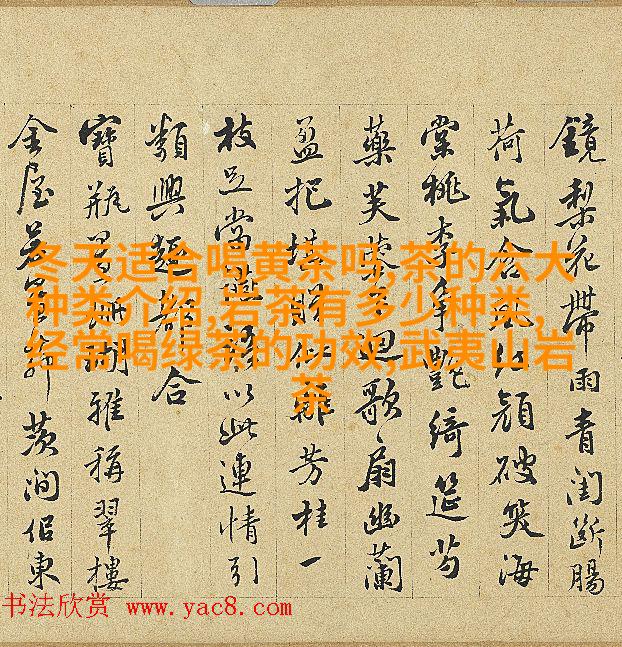 鏡梨花帶雨青閨斷腸
荷氣含風紅顏破笑海
棠桃李爭艷綺筵芍
藥芙蓉迴歌扇幽蘭
盈把堪似誰芳桂一
枝足當語以此連情引
類興趣都合
寶瓶置珊瑚雅稱翠樓
金屋若澗侶東
冬天适合喝黄茶吗,茶的六大
种类介绍,岩茶有多少种类,
经常喝绿茶的功效,武夷山岩
茶
书法欣赏 www.yac8.com